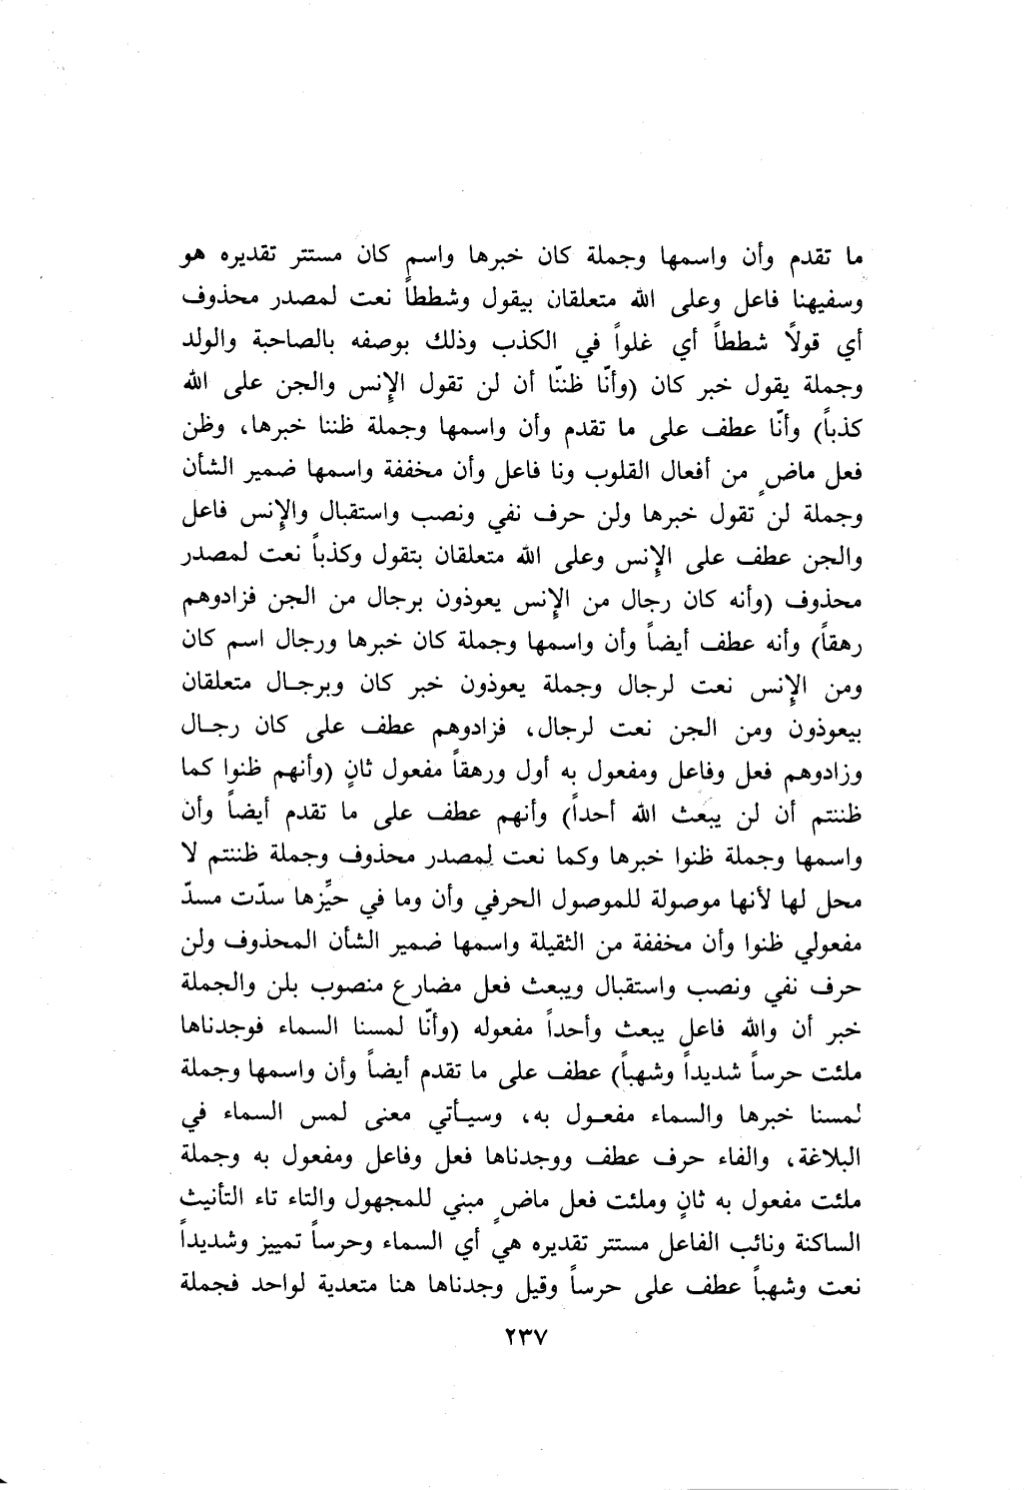 ما تقدم وأن واسمها وجملة كان خبرها واسم كان مستتر تقديره هو
وسفيهنا فاعل وعلى الله متعلقان بيقول وشططاً نعت لمصدر محذوف
أي قولًا شططاً أي غلواً في الكذب وذلك بوصفه بالصاحبة والولد
وجملة يقول خبر كان (وأنّا ظننّا أن لن تقول الإنس والجن على الله
كذباً) وأنّا عطف على ما تقدم وأن واسمها وجملة ظننا خبرها، وظن
فعل ماضٍ من أفعال القلوب ونا فاعل وأن مخففة واسمها ضمير الشأن
وجملة لن تقول خبرها ولن حرف نفي ونصب واستقبال والإنس فاعل
والجن عطف على الإنس وعلى الله متعلقان بتقول وكذباً نعت لمصدر
محذوف (وأنه كان رجال من الإنس يعوذون برجال من الجن فزادوهم
رهقاً) وأنه عطف أيضاً وأن واسمها وجملة كان خبرها ورجال اسم كان
ومن الإنس نعت لرجال وجملة يعوذون خبر كان وبرجال متعلقان
بيعوذون ومن الجن نعت لرجال، فزادوهم عطف على كان رجال
وزادوهم فعل وفاعل ومفعول به أول ورهقاً مفعول ثانٍ (وأنهم ظنوا كما
ظننتم أن لن يبعث الله أحداً) وأنهم عطف على ما تقدم أيضاً وأن
واسمها وجملة ظنوا خبرها وكما نعت لمصدر محذوف وجملة ظننتم لا
محل لها لأنها موصولة للموصول الحرفي وأن وما في حيِّزها سدّت مسدّ
مفعولي ظنوا وأن مخففة من الثقيلة واسمها ضمير الشأن المحذوف ولن
حرف نفي ونصب واستقبال ويبعث فعل مضارع منصوب بلن والجملة
خبر أن والله فاعل يبعث وأحداً مفعوله (وأنّا لمسنا السماء فوجدناها
ملئت حرساً شديداً وشهباً) عطف على ما تقدم أيضاً وأن واسمها وجملة
لمسنا خبرها والسماء مفعول به، وسيأتي معنى لمس السماء في
البلاغة، والفاء حرف عطف ووجدناها فعل وفاعل ومفعول به وجملة
ملئت مفعول به ثانٍ وملئت فعل ماضٍ مبني للمجهول والتاء تاء التأنيث
الساكنة ونائب الفاعل مستتر تقديره هي أي السماء وحرساً تمييز وشديداً
نعت وشهباً عطف على حرساً وقيل وجدناها هنا متعدية لواحد فجملة
٢٣٧